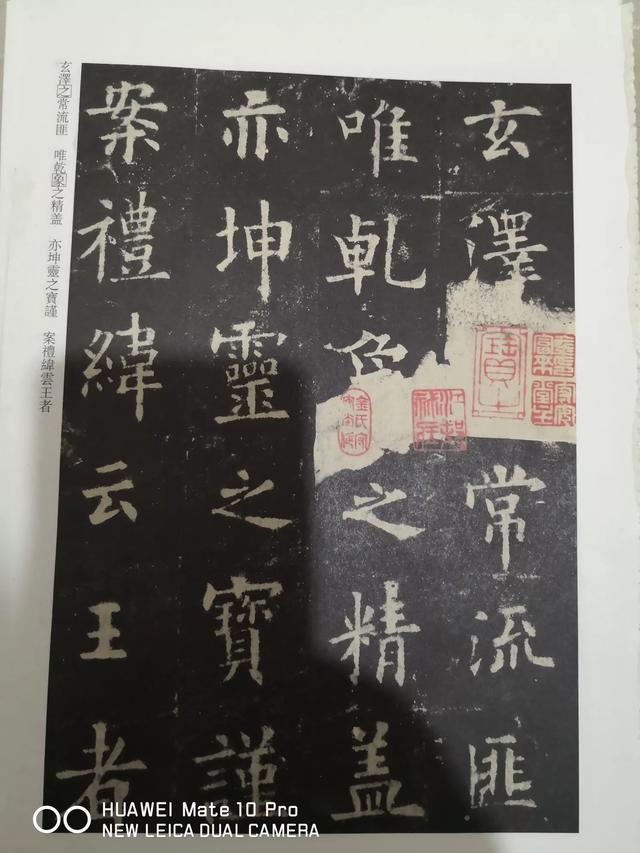 玄澤常流匪
唯乹之精盖
亦坤靈之寶謹
案禮緯云王者
玄澤之常流匪　唯乾象之精盖　亦坤靈之寶謹　案禮緯雲王者
HUAWEI Mate 10 Pro
NEW LEICA DUAL CAMERA